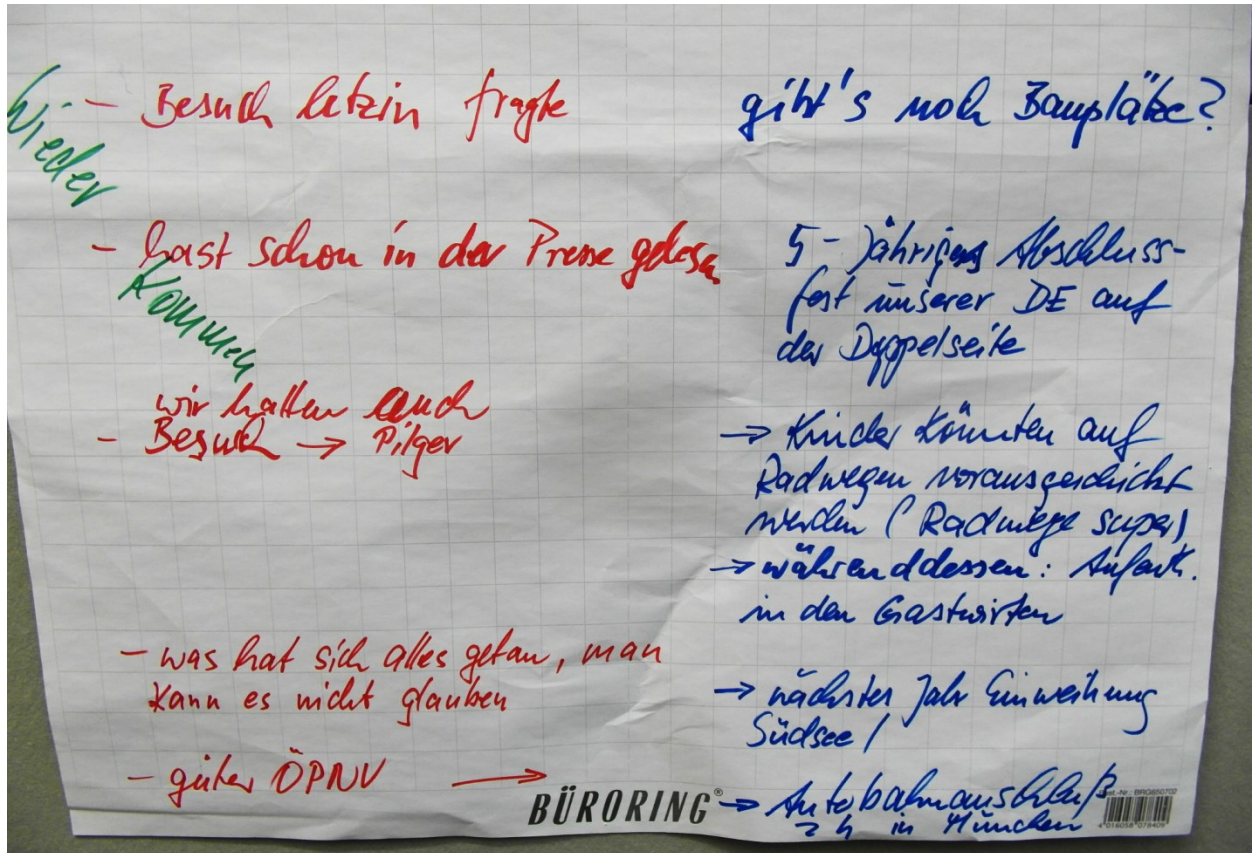 Wieder
Kommen
- Besuch letzin fragte
- hast schon in der Presse gelesen
wir hatten auch
- Besuch → Pilger
- was hat sich alles getan, man
kann es nicht glauben
- guter ÖPNV →
gibt's noch Bauplätze?
5-jähriges Abschluss-
fest unserer DE auf
der Doppelseite
→ Kinder könnten auf
Radwegen vorausgeschickt
werden (Radwege super)
→ währenddessen: Aufenth.
in den Gastwirten
→ nächstes Jahr Einweihung
Südsee!
→ Autobahnanschluß
2 h in München
BÜRORING®
Best.-Nr.: BRG650702
4 016058 078409